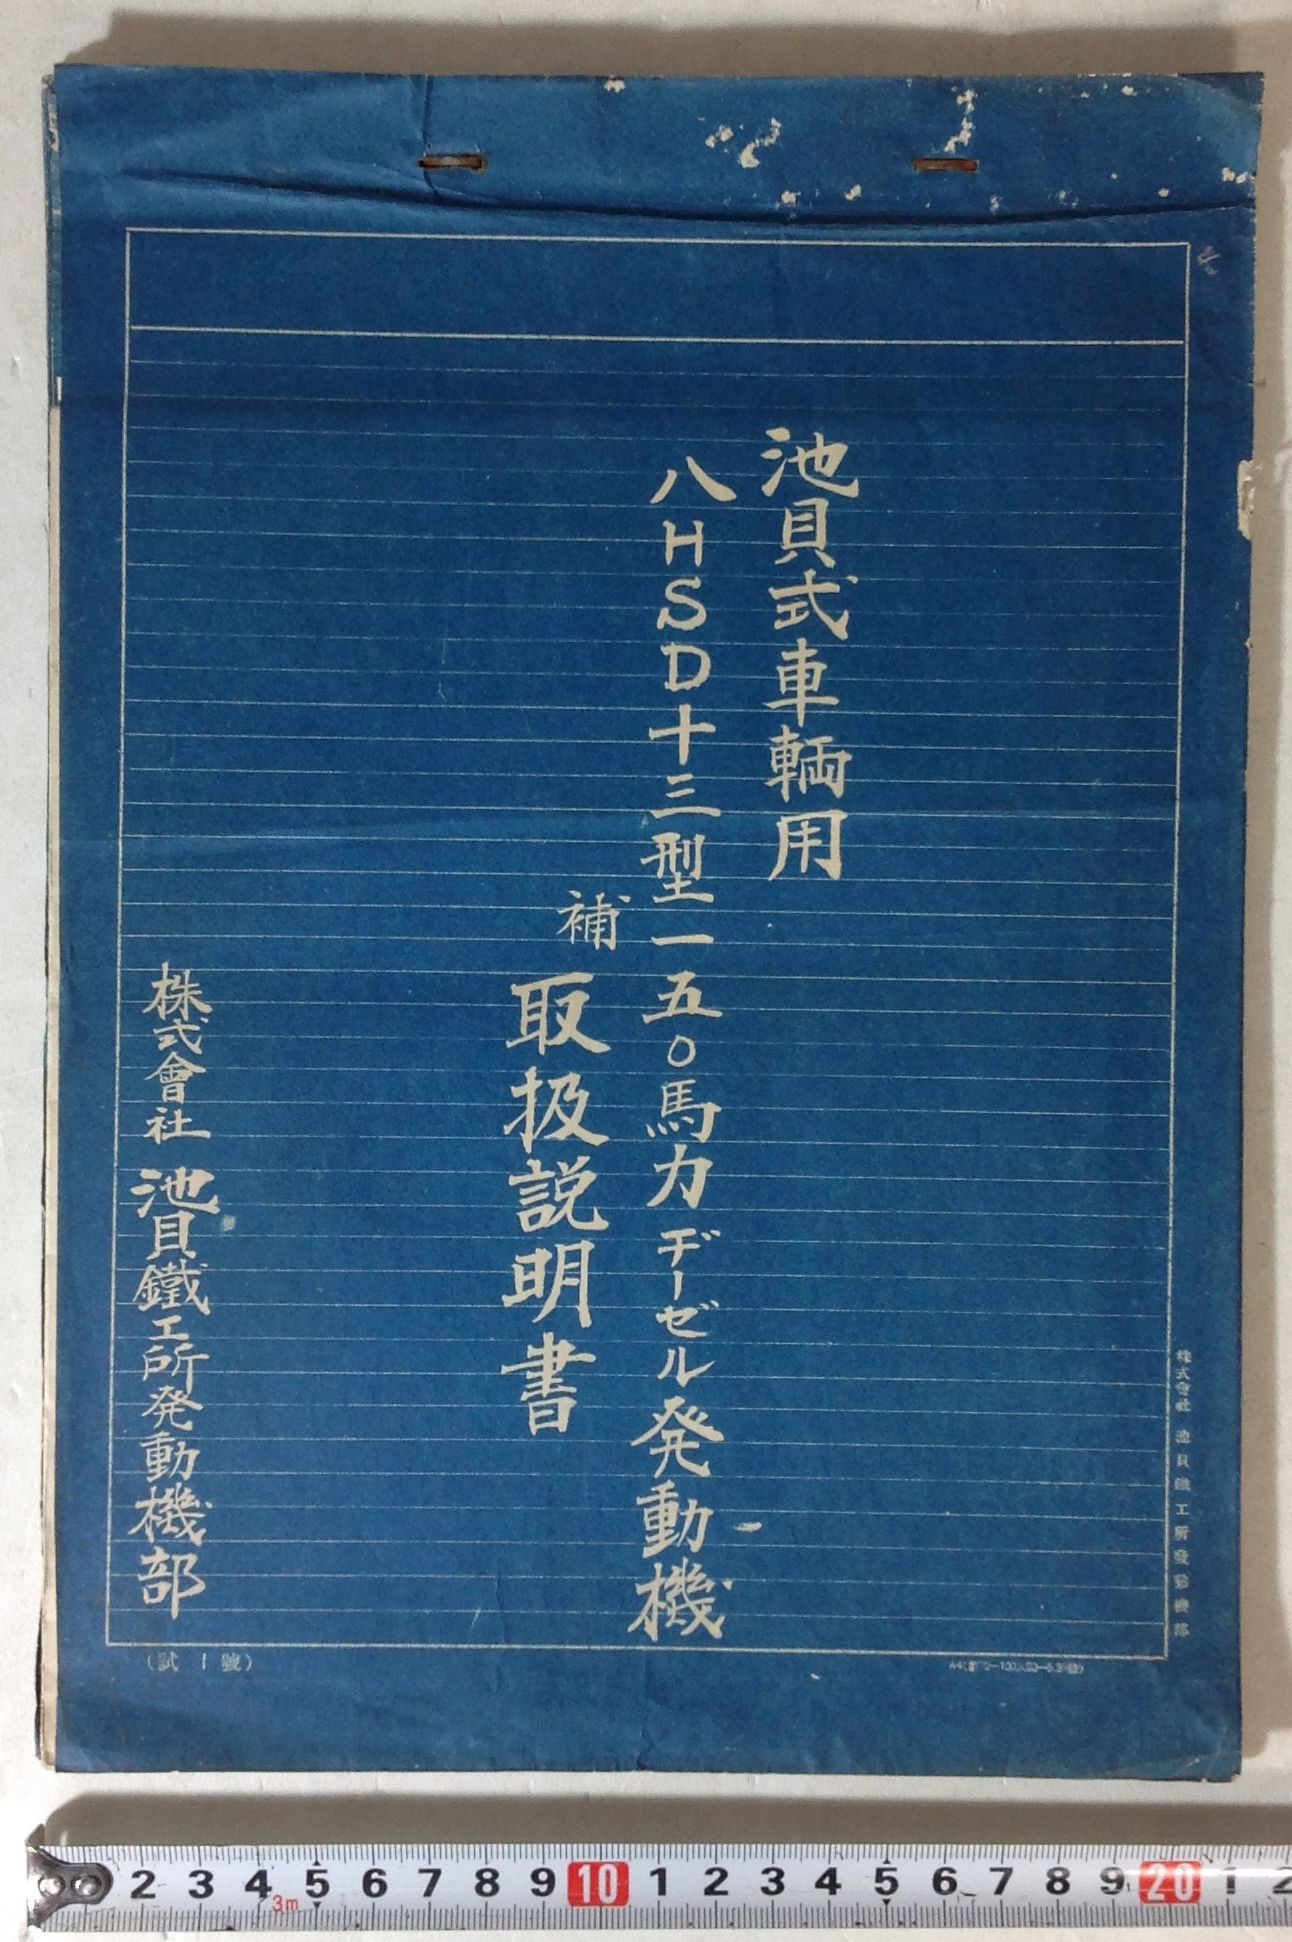 池貝式車輌用
八HSD十三型一五〇馬力ヂーゼル発動機
補
取扱説明書
株式會社 池貝鐵工所発動機部
株式會社 池貝鐵工所發動機部
(試 1 號)
2 3 4 5 6 7 8 9 10 1 2 3 4 5 6 7 8 9 20 1 2
3m